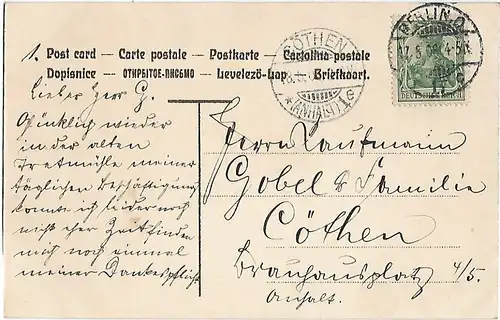 1. Post card — Carte postale — Postkarte — Cartolina postale
Dopisnice — ОТКРЫТОЕ-ПИСЬМО — Levelező-Lap — Briefkaart.
CÖTHEN
(ANHALT) 1
BERLIN
17.8.09.4-5N.
DEUTSCHES
Lieber Herr G.
Glücklich wieder
in der alten
Tretmühle meiner
täglichen Beschäftigung
komme ich leider noch
nicht eher Zeit finden
mich noch einmal
meiner Dankespflicht
Herrn Kaufmann
Gobel & Familie
Cöthen
Brauhausplatz 4/5.
Anhalt.